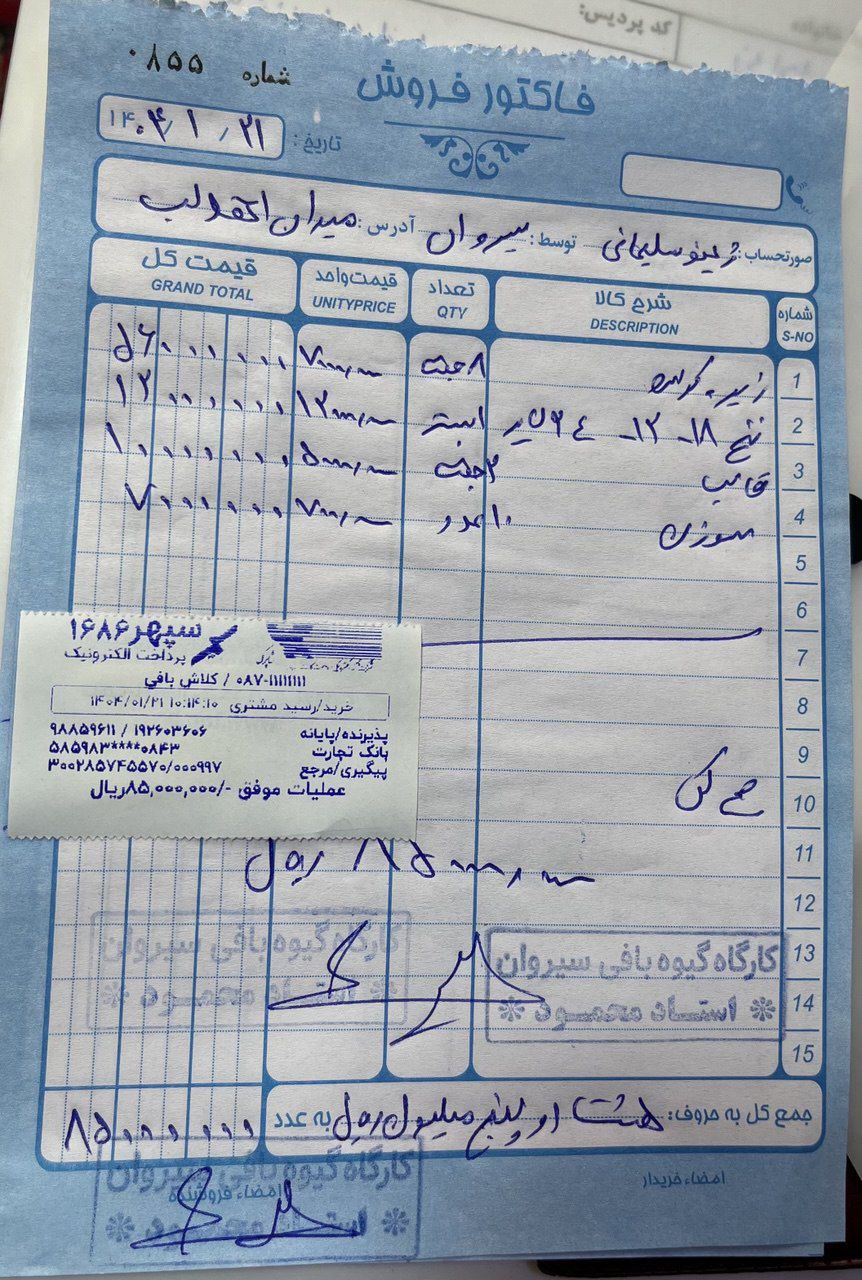 کد پردیس:
شماره ۰۸۵۵
فاکتور فروش
تاریخ: ۱۴۰۴/۱/۲۱
صورتحساب: ژینو سلیمانی توسط: سیروان آدرس: میدان انقلاب
شماره S-NO شرح کالا DESCRIPTION تعداد QTY قیمت واحد UNITYPRICE قیمت کل GRAND TOTAL
1 ۸ جفت ۷۰۰۰۰۰۰ ۵۶۰۰۰۰۰۰
2 نخ ۱۸ - ۱۲ - ۱۲۰۰۰۰۰۰ ۱۲۰۰۰۰۰۰
3 قالب ۲ جفت ۵۰۰۰۰۰۰ ۱۰۰۰۰۰۰۰
4 سوزن ۱۰ عدد ۷۰۰۰۰۰ ۷۰۰۰۰۰۰
5
6
7
8
9
10
11 ۸۵۰۰۰۰۰۰ ریال
12
13
14
15
سپهر ۱۶۸۶
پرداخت الکترونیک
۰۸۷-۱۱۱۱۱۱۱۱ / کلاش بافی
خرید/رسید مشتری ۱۰:۱۴:۱۰ ۱۴۰۴/۰۱/۲۱
پذیرنده/پایانه ۹۸۸۵۹۶۱۱ / ۱۹۲۶۰۳۶۰۶
بانک تجارت ۵۸۵۹۸۳****۰۸۴۳
پیگیری/مرجع ۳۰۰۲۸۵۷۴۵۵۷۰/۰۰۰۹۹۷
عملیات موفق -/۸۵,۰۰۰,۰۰۰ریال
کارگاه گیوه بافی سیروان
استاد محمود
کارگاه گیوه بافی سیروان
استاد محمود
جمع کل به حروف: هشتاد و پنج میلیون ریال به عدد ۸۵۰۰۰۰۰۰
امضاء خریدار
امضاء فروشنده
کارگاه گیوه بافی سیروان
استاد محمود